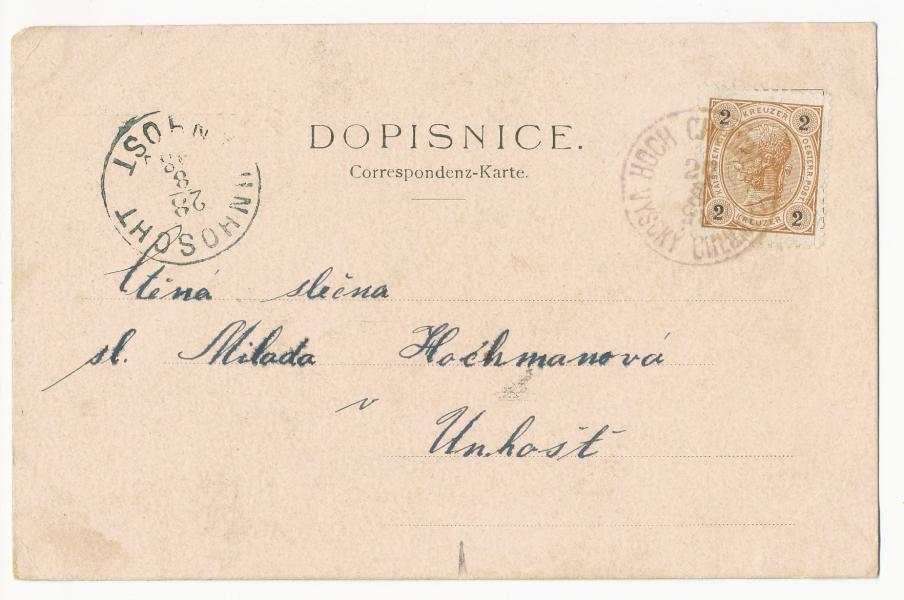 DOPISNICE.
Correspondenz-Karte.
UNHOSCHT
28
HOCH
VYSOKÝ
2 KREUZER 2
KAIS. KOENIGL. OESTERR. POST.
2 KREUZER 2
Ctěná slečna
sl. Milada Hochmanová
v
Unhošť